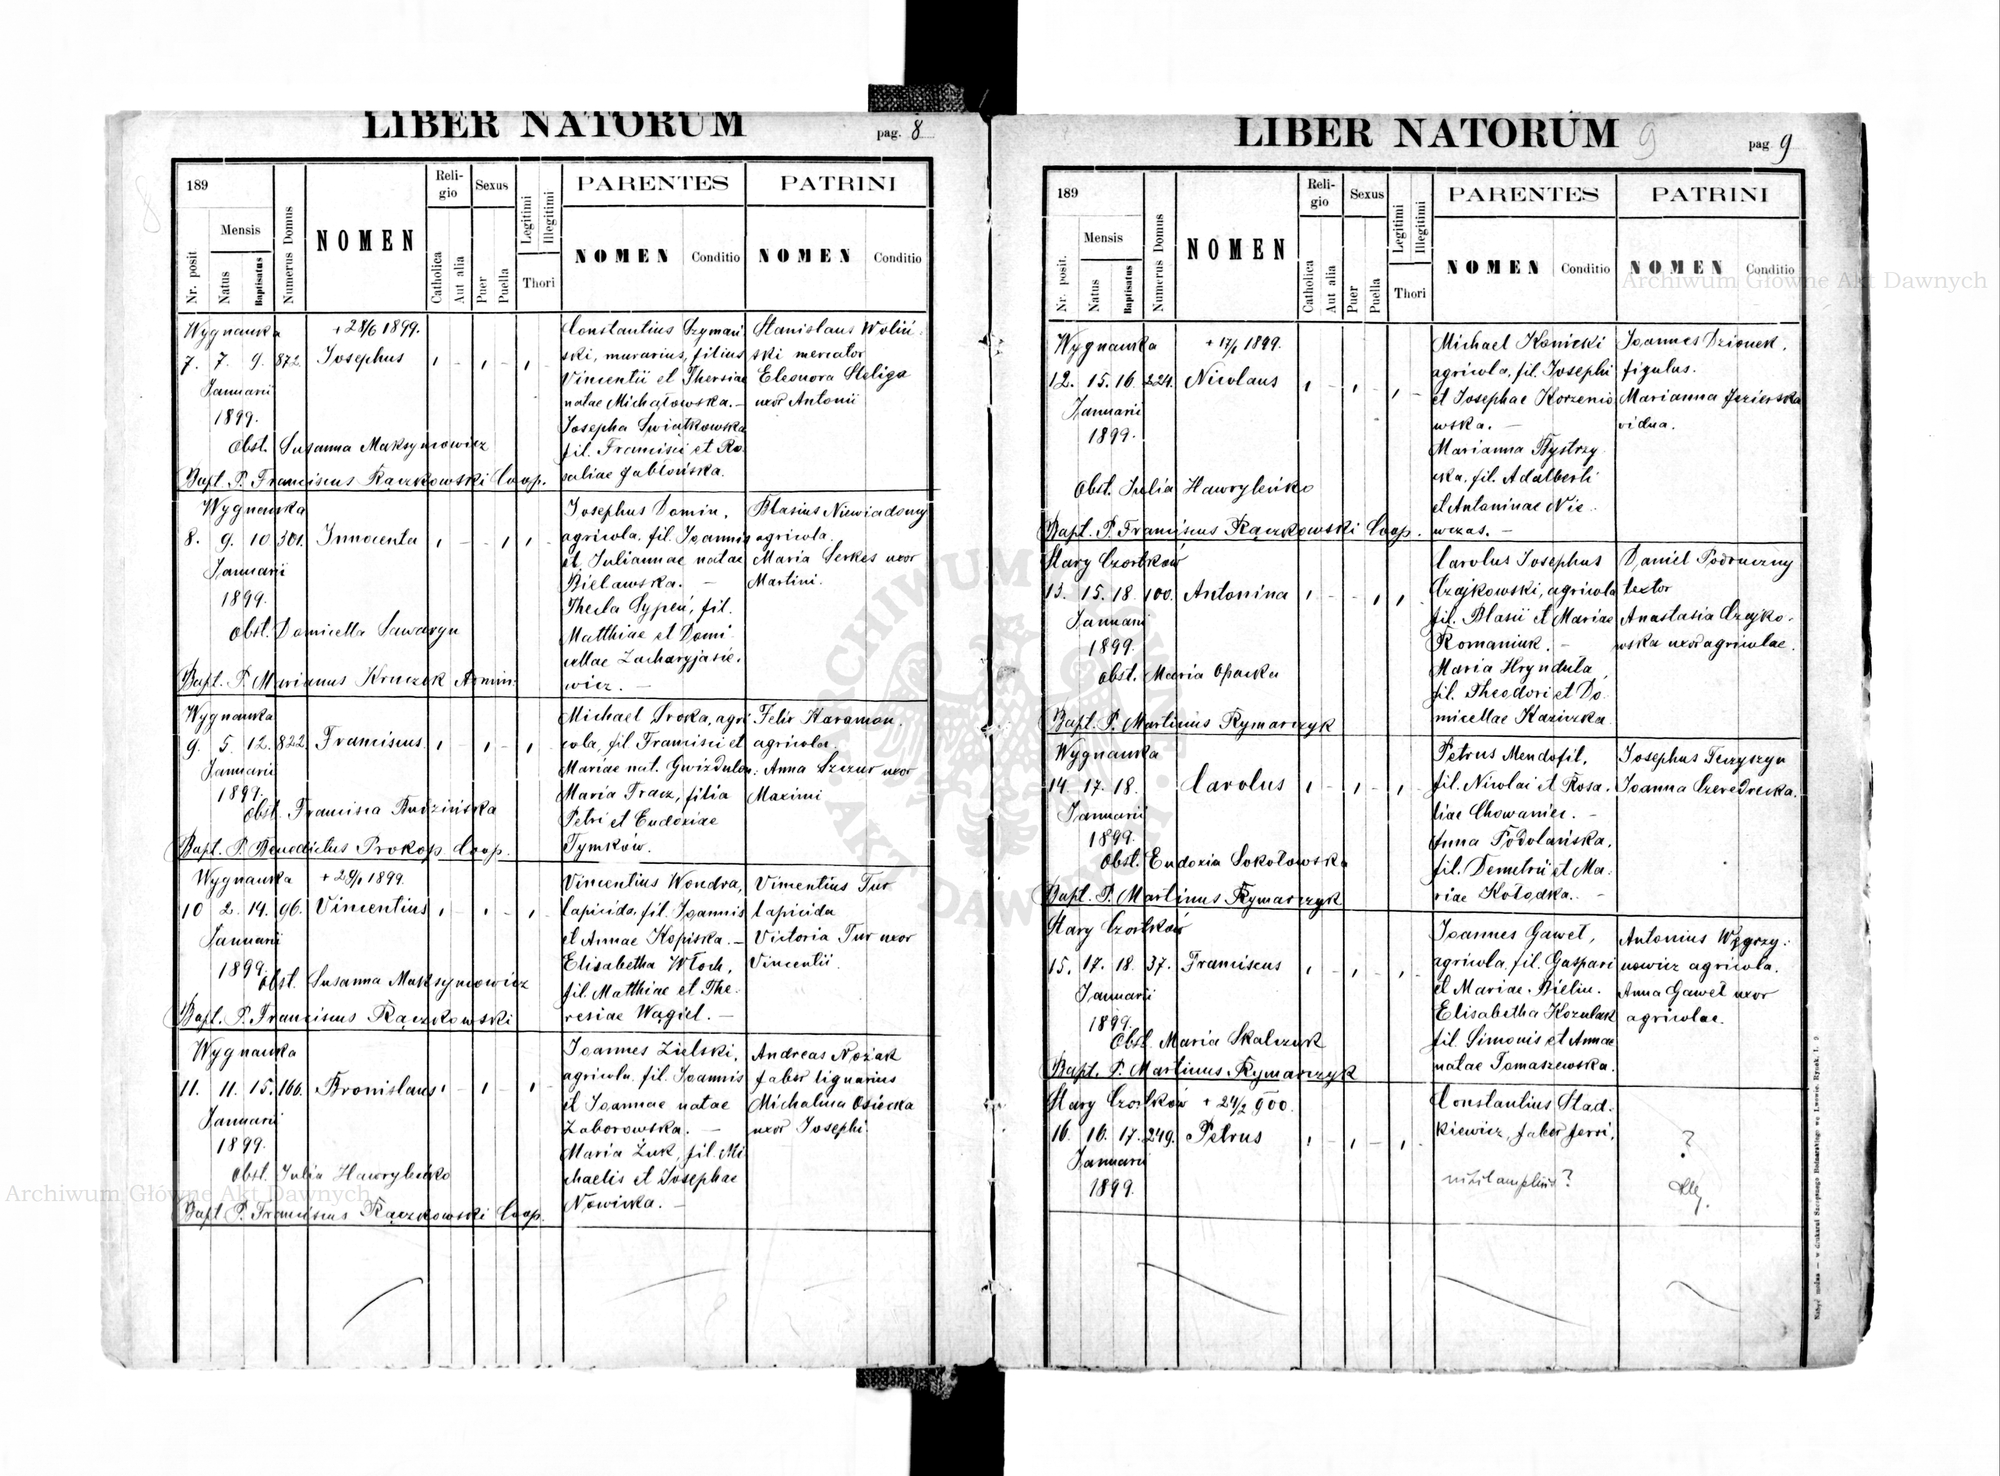 LIBER NATORUM
pag. 8
189
Mensis
Nr. posit
Natus
Baptisatus
Numerus Domus
NOMEN
Reli-
gio
Catholica
Aut alia
Sexus
Puer
Puella
Legitimi
Illegitimi
Thori
PARENTES
NOMEN
Conditio
PATRINI
NOMEN
Conditio
Wygnanka
+ 28/6 1899.
7. 7. 9. 872. Josephus
Januarii
1899.
Obst. Susanna Maksymowicz
Bapt. P. Franciscus Rączkowski Coop.
Constantius Szymań
ski, murarius, filius
Vincentii et Thersiae
natae Michałowska. —
Josepha Swiątkowska
fil. Francisci et Ro
saliae Jabłońska.
Stanislaus Woliń
ski mercator
Eleonora Steliga
uxor Antonii
Wygnanka
8. 9. 10 301. Innocenta
Januarii
1899.
Obst. Domicella Sawaryn
Bapt. P. Marianus Kruczek Admin.
Josephus Domin,
agricola, fil. Joannis
et Juliannae natae
Bielawska. —
Thecla Sypeń, fil.
Matthiae et Domi
cellae Zacharyjasie.
wicz. —
Blasius Niewiadomy
agricola.
Maria Serkes uxor
Martini.
Wygnanka
9. 5. 12. 822. Franciscus
Januarii
1899.
Obst. Francisca Budzińska
Bapt. P. Benedictus Prokop Coop.
Michael Sroka, agri
cola, fil Francisci et
Mariae nat. Gwizdulon:
Maria Tracz, filia
Petri et Eudoxiae
Tymków.
Felix Karamon.
agricola.
Anna Szczur uxor
Maximi
Wygnanka
+ 29/1 1899.
10 2. 14. 96. Vincentius
Januarii
1899.
Obst. Susanna Maksymowicz
Bapt. P. Franciscus Rączkowski
Vincentius Wondra,
lapicida, fil. Joannis
et Annae Kopiska. —
Elisabetha Włoch,
fil. Matthiae et The.
resiae Wągiel. —
Vincentius Tur
lapicida
Victoria Tur uxor
Vincentii.
Wygnanka
11. 11. 15. 166. Bronislaus
Januarii
1899.
Obst. Julia Hawryleńko
Bapt P. Franciscus Rączkowski Coop.
Joannes Zielski,
agricola. fil. Joannis
et Joannae natae
Zaborowska. —
Maria Żuk, fil. Mi
chaelis et Josephae
Nowicka. —
Andreas Nożak
faber lignarius
Michalina Osiecka
uxor Josephi.
LIBER NATORUM
9
pag 9
189
Mensis
Nr. posit.
Natus
Baptisatus
Numerus Domus
NOMEN
Reli-
gio
Catholica
Aut alia
Sexus
Puer
Puella
Legitimi
Illegitimi
Thori
PARENTES
NOMEN
Conditio
PATRINI
NOMEN
Conditio
Wygnanka
1899.
12. 15. 16. 224. Nicolaus
Januarii
1899.
Obst. Julia Hawryleńko
Bapt. P. Franciscus Rączkowski Coop.
Michael Konicki
agricola, fil. Josephi
et Josephae Korzenio
wska. —
Marianna Bystrzy
cka, fil. Adalberti
et Antoninae Nie
wczas. —
Joannes Dzionek,
figulus.
Marianna Jezierska
vidua.
Stary Czortków
13. 15. 18. 100. Antonina
Januarii
1899.
Obst. Maria Opacka
Bapt. P. Martinus Rymarczyk
Carolus Josephus
Czajkowski, agricola
fil. Blasii et Mariae
Romaniuk. —
Maria Hrynduła,
fil. Theodori et Do
micellae Kaziczka
Daniel Podruczny
textor
Anastasia Czajko.
wska uxor agricolae.
Wygnanka
14. 17. 18. Carolus
Januarii
1899.
Obst. Eudoxia Sokołowska
Bapt. P. Martinus Rymarczyk
Petrus Mendofil,
fil. Nicolai et Rosa.
liae Chowaniec. —
Anna Podolańska,
fil. Demetrii et Ma.
riae Kołodka. —
Josephus Tczyszyn
Joanna Czeredrecka.
Stary Czortków
15. 17. 18. 37. Franciscus
Januarii
1899.
Obst. Maria Skalczuk
Bapt. P. Martinus Rymarczyk
Joannes Gaweł,
agricola, fil. Gaspari
et Mariae Bielin.
Elisabetha Kozulak
fil Simonis et Annae
natae Tomaszewska.
Antonius Węgrzy:
nowicz agricola.
Anna Gaweł uxor
agricolae.
Stary Czortków + 24/2 900.
16. 16. 17. 249. Petrus
Januarii
1899.
Constantius Stad.
kiewicz, faber ferri,
nihil amplius?
?
Nakład i własność — w drukarni Szczęsnego Bednarskiego we Lwowie. Rynek. l. 9.
Archiwum Główne Akt Dawnych
Archiwum Główne Akt Dawnych
ARCHIWUM GŁÓWNE AKT DAWNYCH